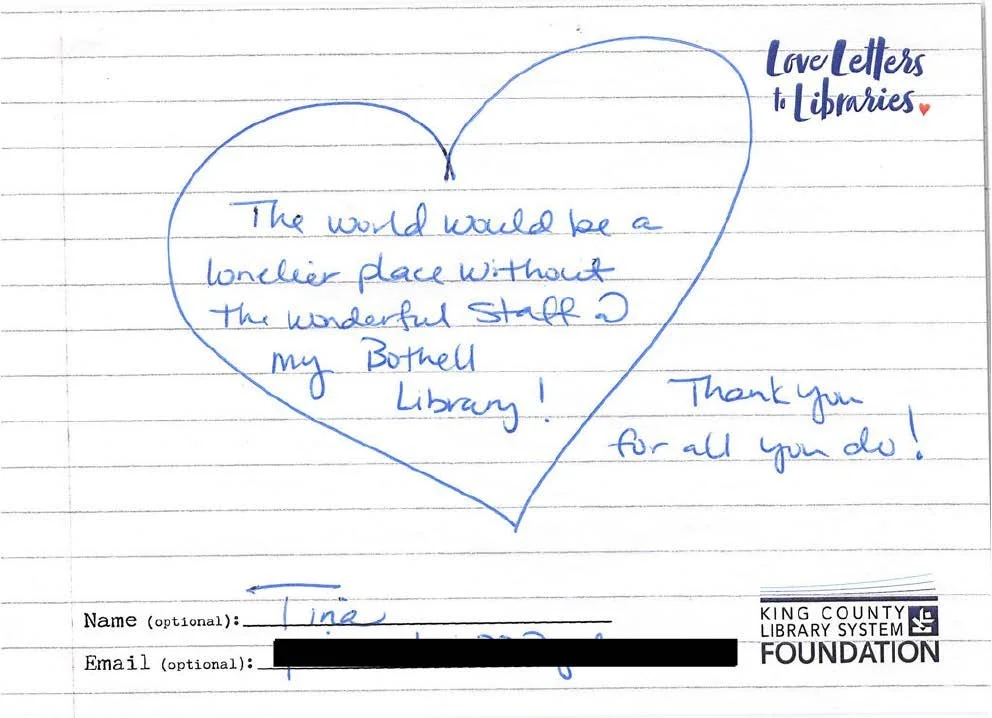 Love Letters
to Libraries
The world would be a
lonelier place without
the wonderful Staff @
my Bothell
Library!
Thank you
for all you do!
Name (optional): Tina
Email (optional):
KING COUNTY
LIBRARY SYSTEM
FOUNDATION